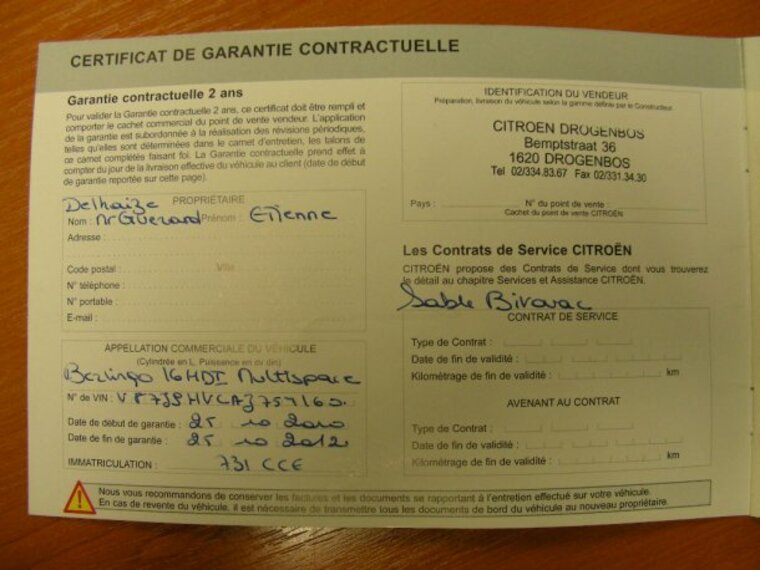 CERTIFICAT DE GARANTIE CONTRACTUELLE
Garantie contractuelle 2 ans
Pour valider la Garantie contractuelle 2 ans, ce certificat doit être rempli et
comporter le cachet commercial du point de vente vendeur. L'application
de la garantie est subordonnée à la réalisation des révisions périodiques,
telles qu'elles sont déterminées dans le carnet d'entretien, les talons de
ce carnet complétés faisant foi. La Garantie contractuelle prend effet à
compter du jour de la livraison effective du véhicule au client (date de début
de garantie reportée sur cette page).
PROPRIÉTAIRE
Delhaize
Nom : Mr Guerard Prénom : Etienne
Adresse :
Code postal : Ville
N° téléphone :
N° portable :
E-mail :
APPELLATION COMMERCIALE DU VÉHICULE
(Cylindrée en L, Puissance en cv din)
Berlingo 16HDI Multispace
N° de VIN :
Date de début de garantie : 25 10 2010
Date de fin de garantie : 25 10 2012
IMMATRICULATION : 731 CCE
IDENTIFICATION DU VENDEUR
Préparation, livraison du véhicule selon la gamme définie par le Constructeur.
CITROEN DROGENBOS
Bemptstraat 36
1620 DROGENBOS
Tel 02/334.83.67 Fax 02/331.34.30
Pays : N° du point de vente :
Cachet du point de vente CITROËN
Les Contrats de Service CITROËN
CITROËN propose des Contrats de Service dont vous trouverez
le détail au chapitre Services et Assistance CITROËN.
Sable Bivouac
CONTRAT DE SERVICE
Type de Contrat :
Date de fin de validité :
Kilométrage de fin de validité : km
AVENANT AU CONTRAT
Type de Contrat :
Date de fin de validité :
Kilométrage de fin de validité : km
Nous vous recommandons de conserver les factures et les documents se rapportant à l'entretien effectué sur votre véhicule.
En cas de revente du véhicule, il est nécessaire de transmettre tous les documents de bord du véhicule au nouveau propriétaire.